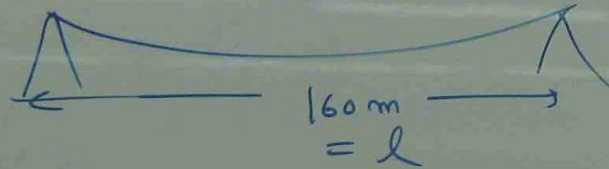 160 m
= l